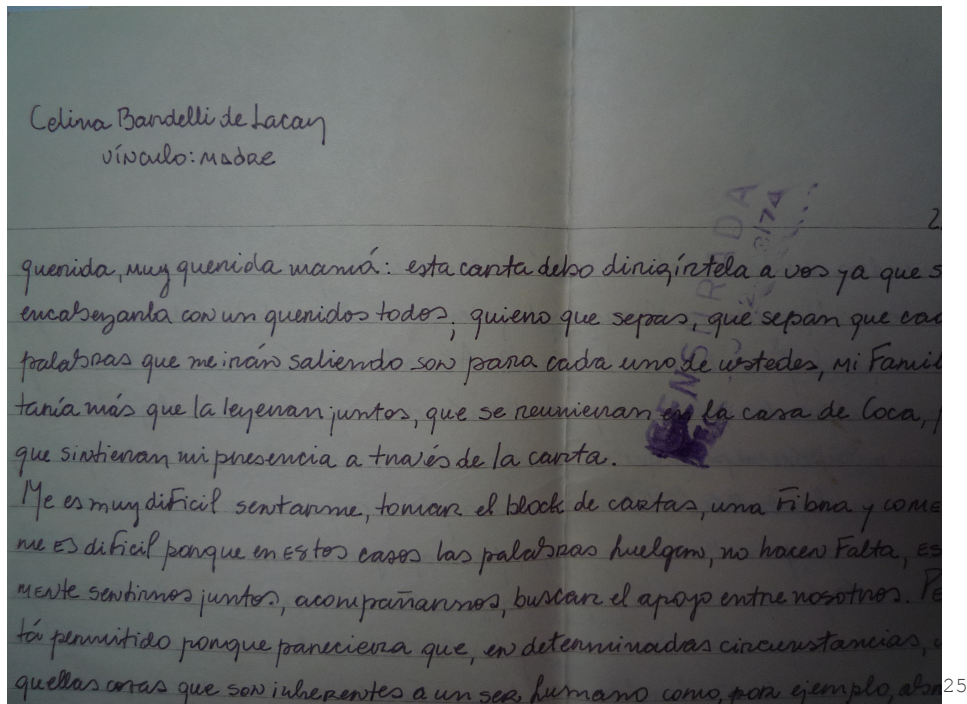 Celina Bandelli de Lacay
vínculo: madre
2
querida, muy querida mamá: esta carta debo dirigírtela a vos ya que s
encabezarla con un queridos todos; quiero que sepas, que sepan que cad
palabras que me irán saliendo son para cada uno de ustedes, mi Famil
taría más que la leyeran juntos, que se reunieran en la casa de Coca, p
que sintieran mi presencia a través de la carta.
CENSURADA
Me es muy dificil sentarme, tomar el block de cartas, una Fibra y come
me es dificil porque en estos casos las palabras huelgan, no hacen Falta, es
mente sentirnos juntos, acompañarnos, buscar el apoyo entre nosotros. Pe
tá permitido porque pareciera que, en determinadas circunstancias, a
quellas cosas que son inherentes a un ser humano como, por ejemplo, abr
25